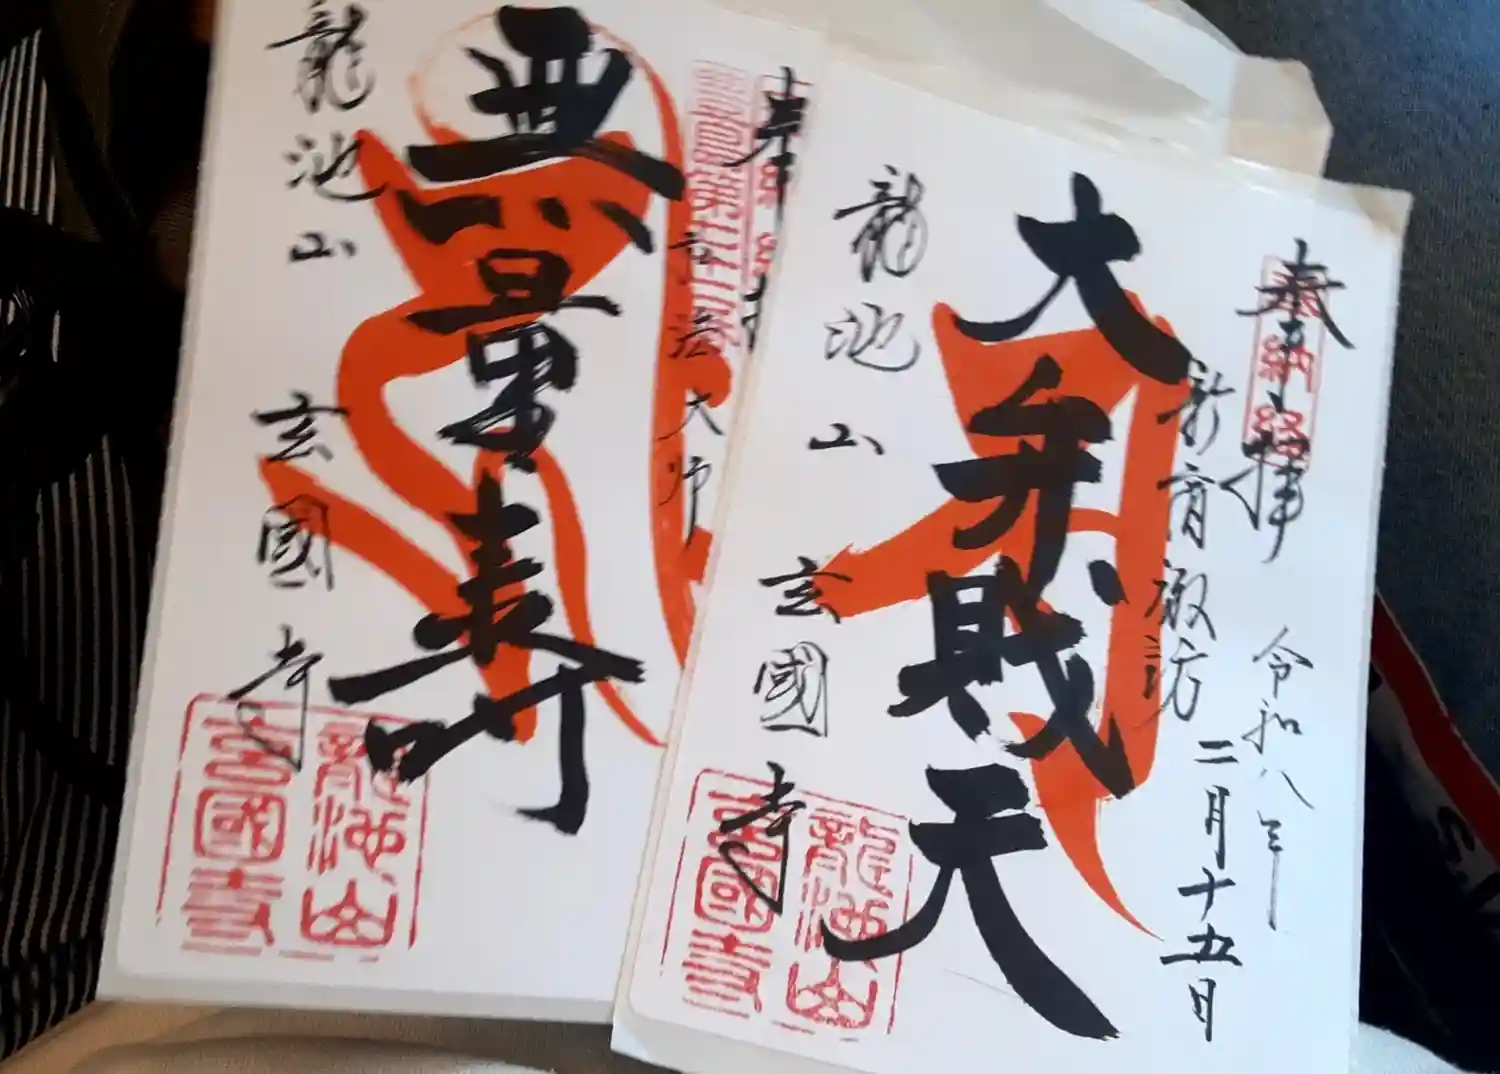 奉拝
令和八年
二月十五日
大弁財天
龍池山 玄國寺
奉納経
龍池山
玄國寺
奉
法大師
無量壽
龍池山 玄國寺
龍池山
玄國寺